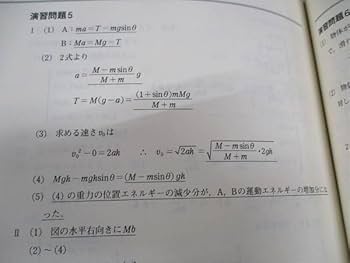 演習問題5
1 (1) A：ma＝T－mgsinθ
B：Ma＝Mg－T
(2) 2式より
a＝(M－msinθ)/(M＋m) g
T＝M(g－a)＝(1＋sinθ)mMg/(M＋m)
(3) 求める速さv₀は
v₀²－0＝2ah ∴ v₀＝√2ah＝√((M－msinθ)/(M＋m)・2gh)
(4) Mgh－mghsinθ＝(M－msinθ)gh
(5) (4)の重力の位置エネルギーの減少分が，A，Bの運動エネルギーの増加分にな
った。
II (1) 図の水平右向きにMb
(2)～(4)
演習問題6
(1) 物体が
(2)